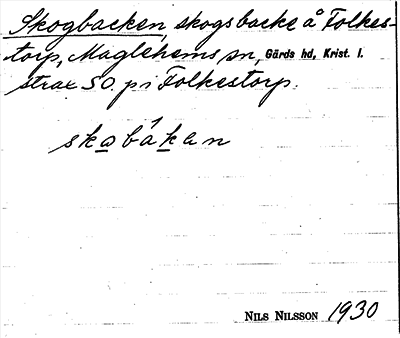 Skogbacken, skogsbacke å Folkes-
torp, Maglehems sn, Gärds hd, Krist. l.
strax SO. på Folkestorp.
skabákan
NILS NILSSON 1930